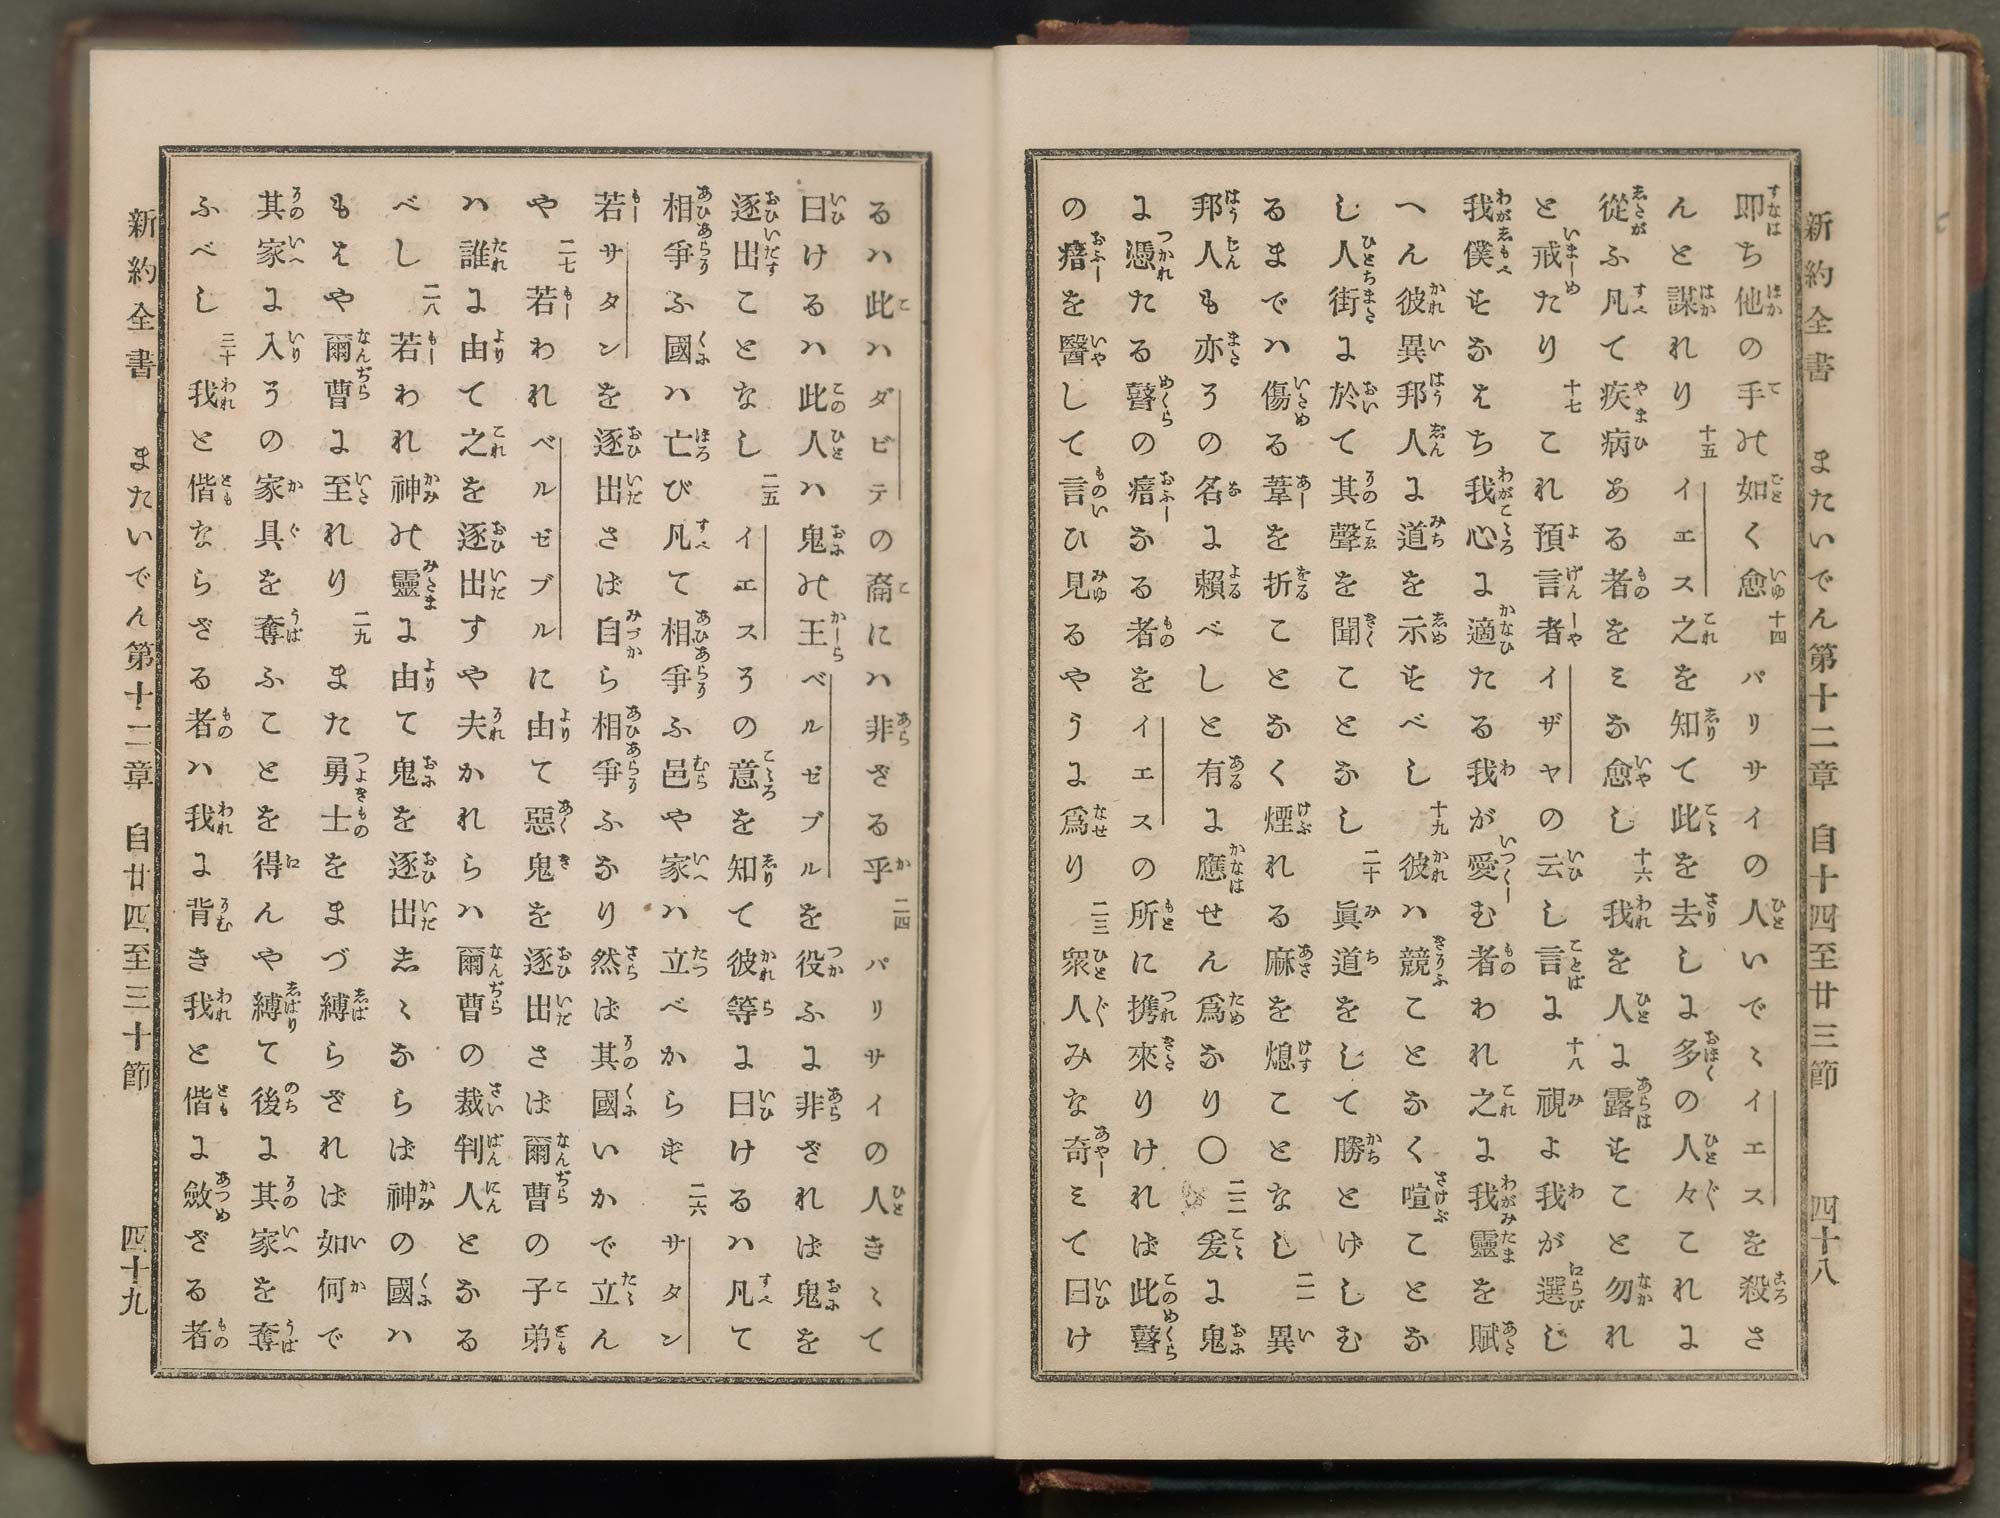 新約全書 またいでん第十二章 自十四至廿三節 四十八
即ち他の手の如く愈 十四 パリサイの人いでゝイエスを殺さ
んと謀れり 十五 イエス之を知て此を去しに多の人々これに
從ふ凡て疾病ある者をミな愈し 十六 我を人に露すこと勿れ
と戒たり 十七 これ預言者イザヤの云し言に 十八 視よ我が選し
我僕すなはち我心に適たる我が愛む者われ之に我靈を賦
へん彼異邦人に道を示すべし 十九 彼ハ競ことなく喧ことな
し人街に於て其聲を聞ことなし 二十 眞道をして勝とげしむ
るまでハ傷る葦を折ことなく煙れる麻を熄ことなし 二一 異
邦人も亦その名に賴べしと有に應せん爲なり〇 二二 爰に鬼
に憑たる瞽の瘖なる者をイエスの所に携來りければ此瞽
の瘖を醫して言ひ見るやうに爲り 二三 衆人みな奇ミて曰け
るハ此ハダビデの裔にハ非ざる乎 二四 パリサイの人きゝて
曰けるハ此人ハ鬼の王ベルゼブルを役ふに非ざれば鬼を
逐出ことなし 二五 イエスその意を知て彼等に曰けるハ凡て
相爭ふ國ハ亡び凡て相爭ふ邑や家ハ立べからず 二六 サタン
若サタンを逐出さば自ら相爭ふなり然ば其國いかで立ん
や 二七 若われベルゼブルに由て惡鬼を逐出さば爾曹の子弟
ハ誰に由て之を逐出すや夫かれらハ爾曹の裁判人となる
べし 二八 若われ神の靈に由て鬼を逐出しゝならば神の國ハ
もはや爾曹に至れり 二九 また勇士をまづ縛らざれば如何で
其家に入その家具を奪ふことを得んや縛て後に其家を奪
ふべし 三十 我と偕ならざる者ハ我に背き我と偕に斂ざる者
新約全書 またいでん第十二章 自廿四至三十節 四十九